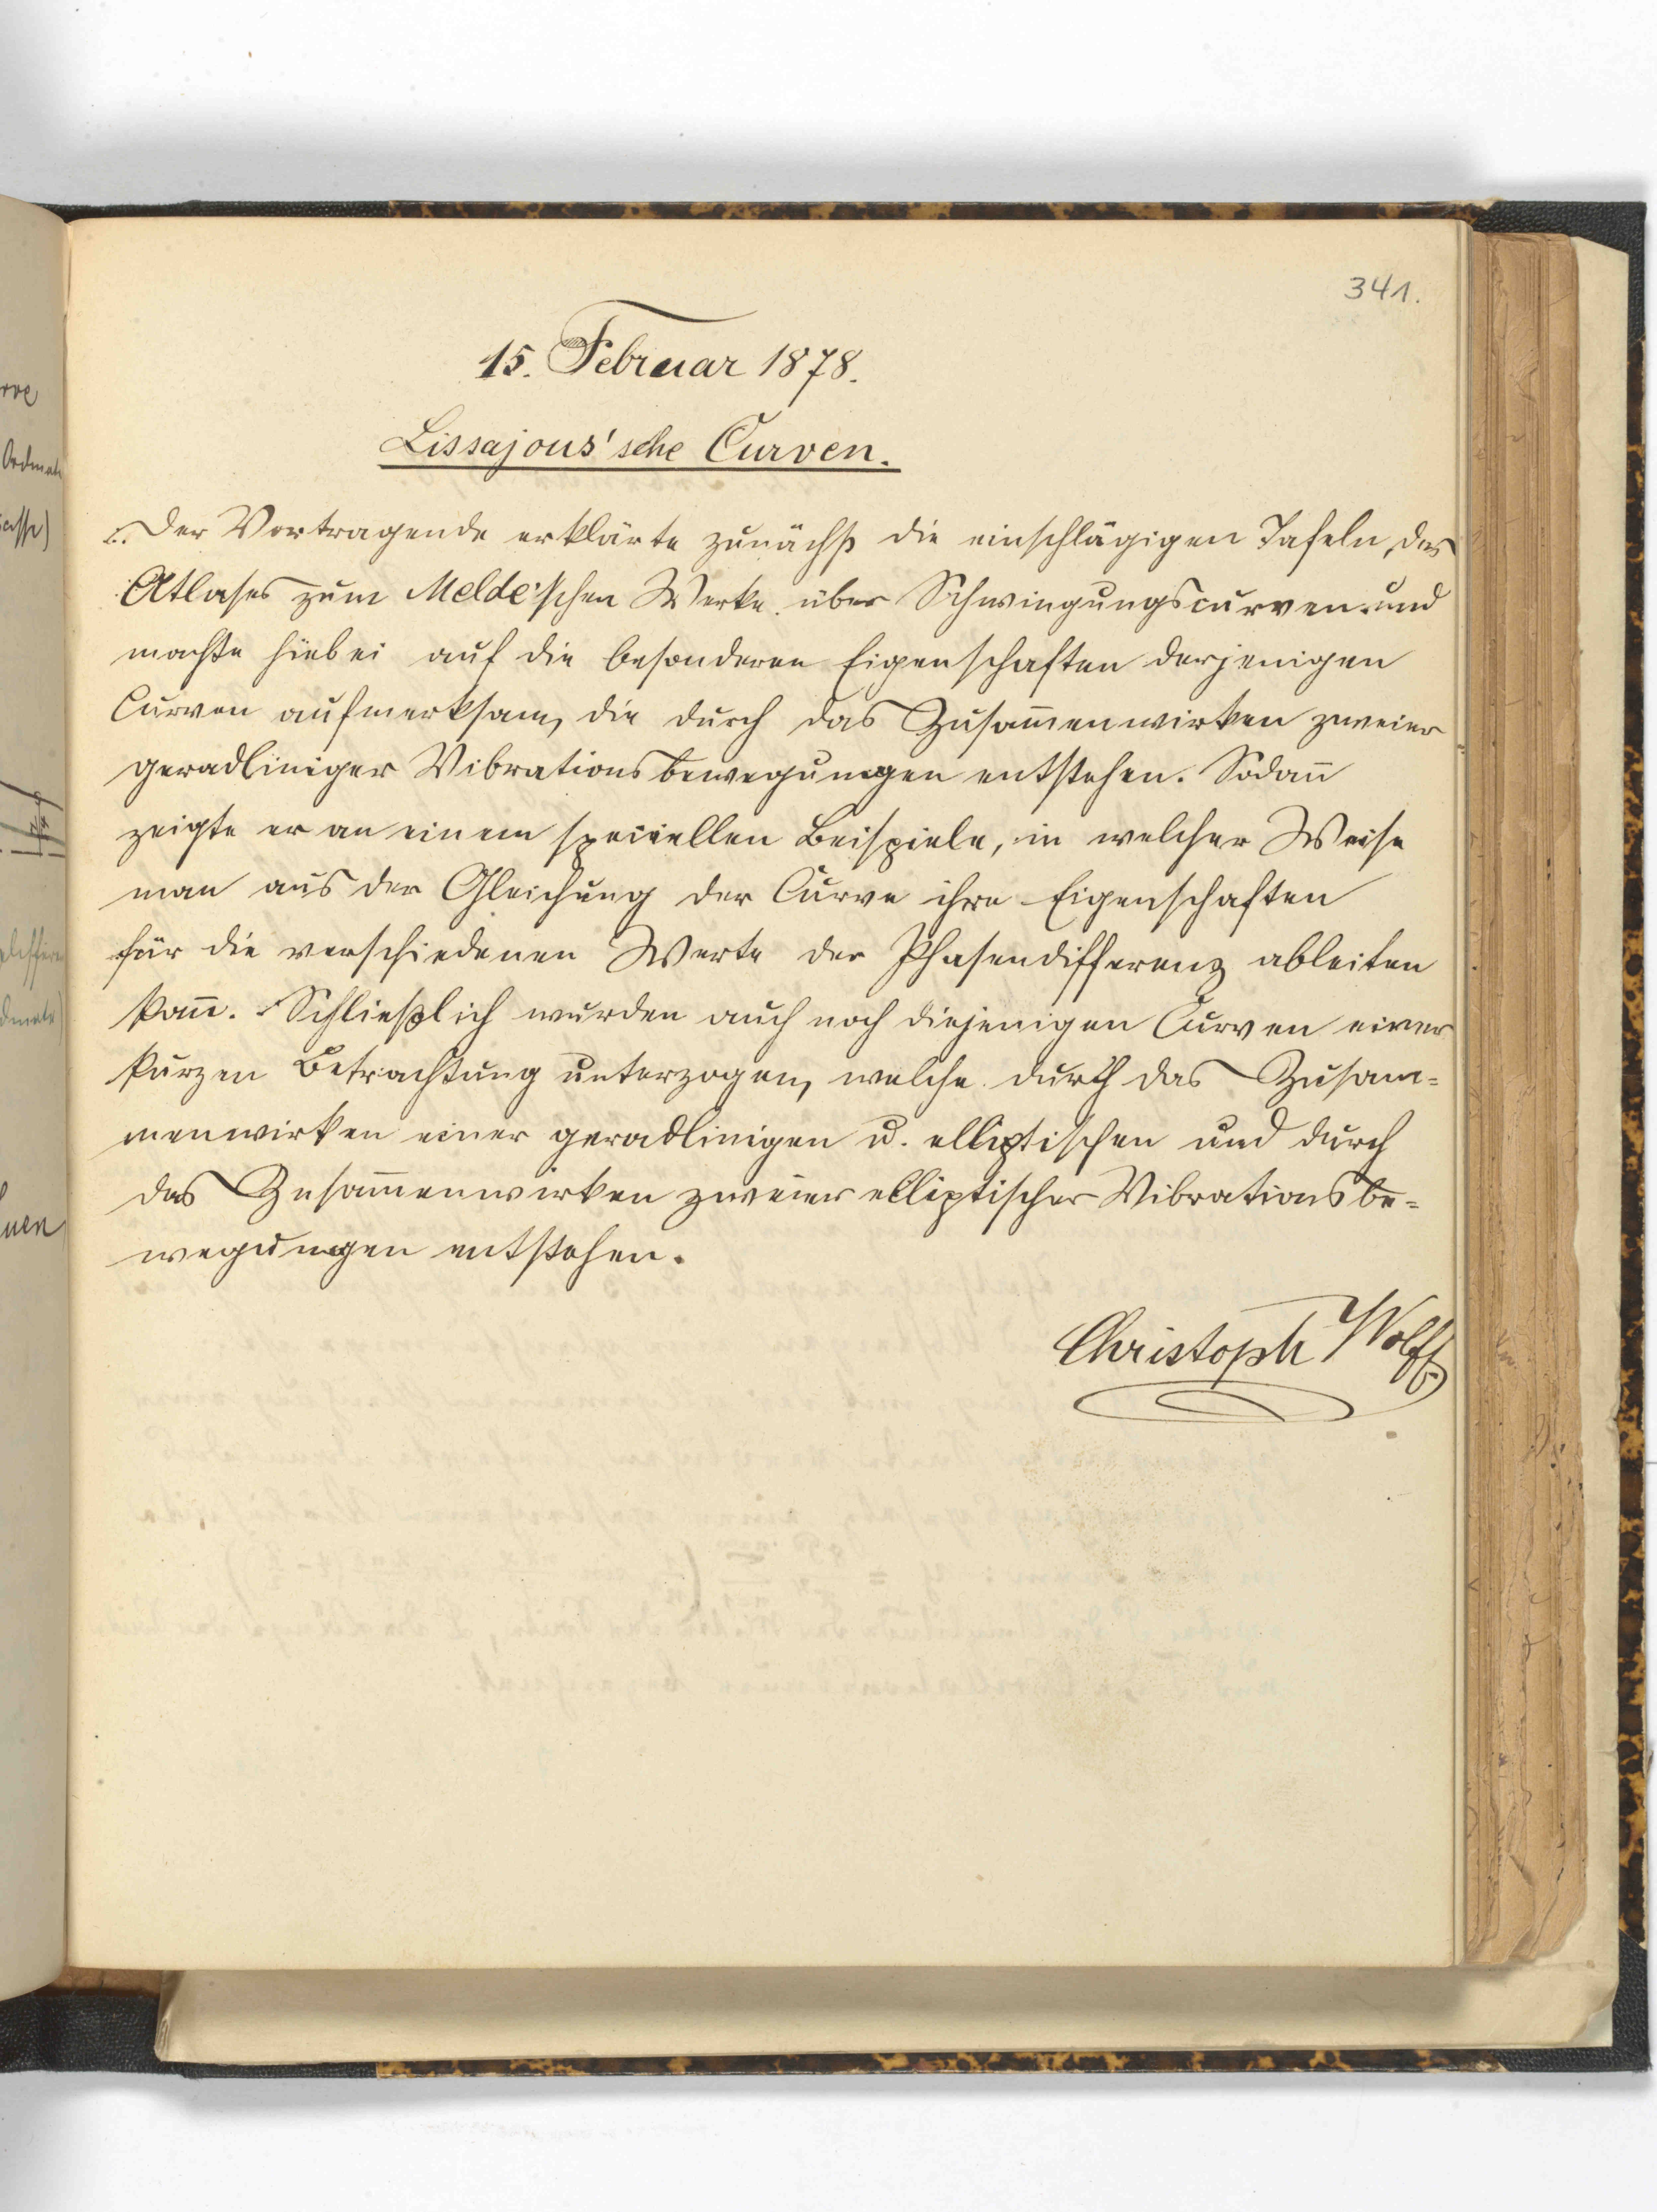 341.
15. Februar 1878.
Lissajous'sche Curven.
Der Vortragende erklärte zunächst die einschlägigen Tafeln des
Atlases zum Melde'schen Werke über Schwingungscurven und
machte hiebei auf die besonderen Eigenschaften derjenigen
Curven aufmerksam, die durch das Zusam̄enwirken zweier
geradliniger Vibrationsbewegungen entstehen. Sodan̄
zeigte er an einem speciellen Beispiele, in welcher Weise
man aus der Gleichung der Curve ihre Eigenschaften
für die verschiedenen Werte der Phasendifferenz ableiten
kan̄. Schließlich wurden auch noch diejenigen Curven einer
kurzen Betrachtung unterzogen, welche durch das Zusam-
menwirken einer geradlinigen u. elliptischen und durch
das Zusam̄enwirken zweier elliptischer Vibrationsbe-
wegungen entstehen.
Christoph Wolff